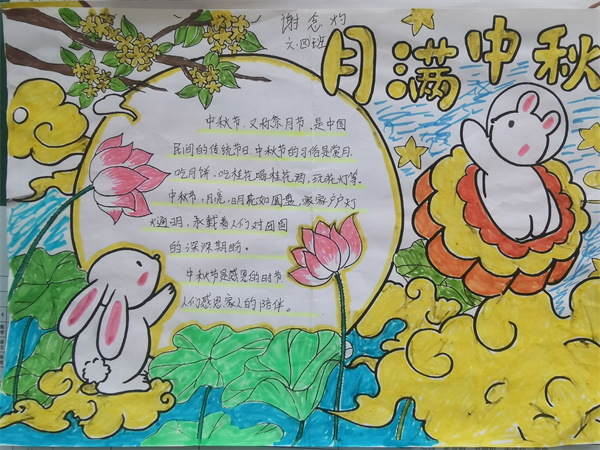 谢念灼
六.四班
月满中秋
中秋节,又称祭月节,是中国
民间的传统节日.中秋节的习俗是赏月.
吃月饼.吃桂花喝桂花酒,玩花灯等.
中秋节,月亮,明亮如圆盘,家家户户灯
火通明,承载着人们对团圆
的深深期盼。
中秋节是感恩的时节
人们感恩家人的陪伴。